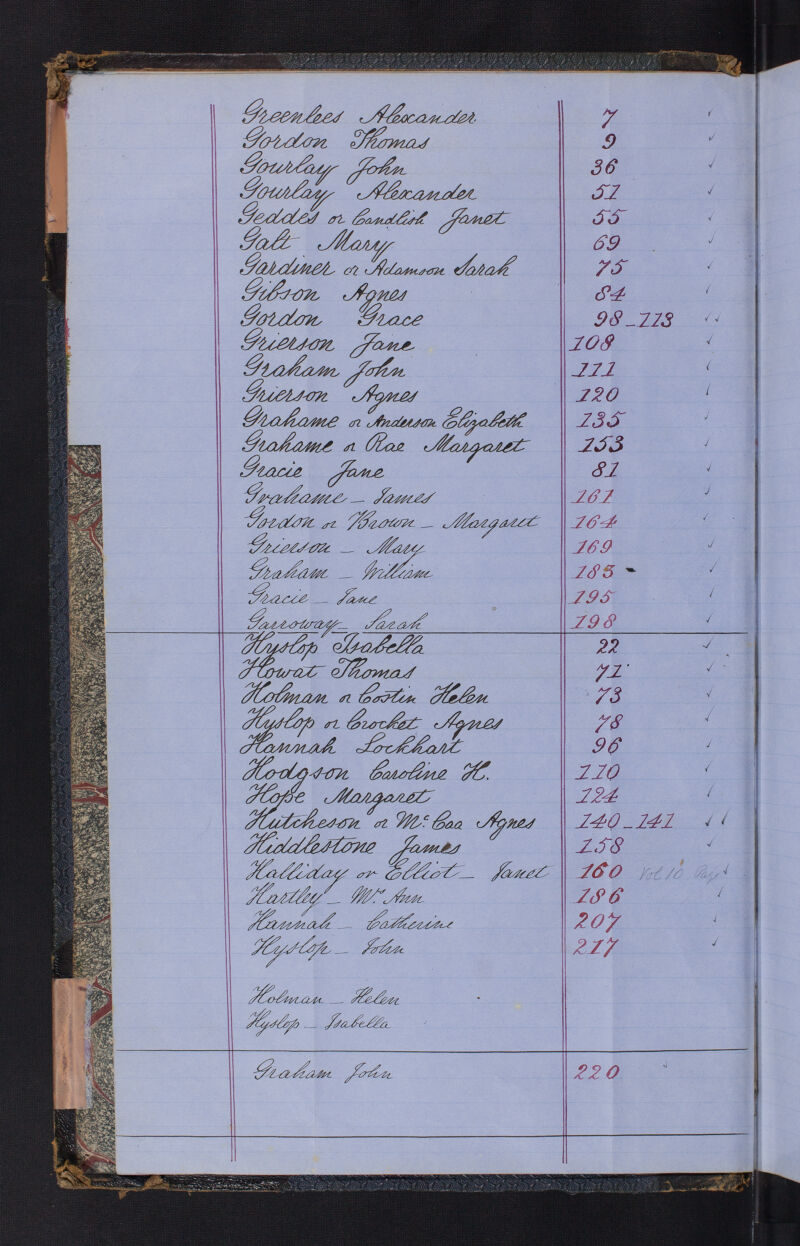 Greenlees Alexander 7 ✓
Gordon Thomas 9 ✓
Gourlay John 36 ✓
Gourlay Alexander 51 ✓
Geddes or Candlish Janet 55 ✓
Galt Mary 69 ✓
Gardiner or Adamson Sarah 75 ✓
Gibson Agnes 84 ✓
Gordon Grace 98_113 ✓✓
Grierson Jane 108 ✓
Graham John 111 ✓
Grierson Agnes 120 ✓
Grahame or Anderson Elizabeth 135 ✓
Grahame or Rae Margaret 153 ✓
Gracie Jane 81 ✓
Grahame _ James 161 ✓
Gordon or Brown _ Margaret 164 ✓
Grierson _ Mary 169 ✓
Graham _ William 183 ✓
Gracie _ Jane 195 ✓
Garroway _ Sarah 198 ✓
Hyslop Isabella 22 ✓
Howat Thomas 71 ✓
Holman or Costin Helen 73 ✓
Hyslop or Crocket Agnes 78 ✓
Hannah Lockhart 96 ✓
Hodgson Caroline H. 110 ✓
Hope Margaret 124 ✓
Hutcheson or McCaa Agnes 140_141 ✓✓
Hiddlestone James 158 ✓
Halliday or Elliot _ Janet 160 Vol 10 ✓
Hartley _ Mrs Ann 186 ✓
Hannah _ Catherine 207 ✓
Hyslop _ John 217 ✓
Holman _ Helen
Hyslop _ Isabella
Graham John 220